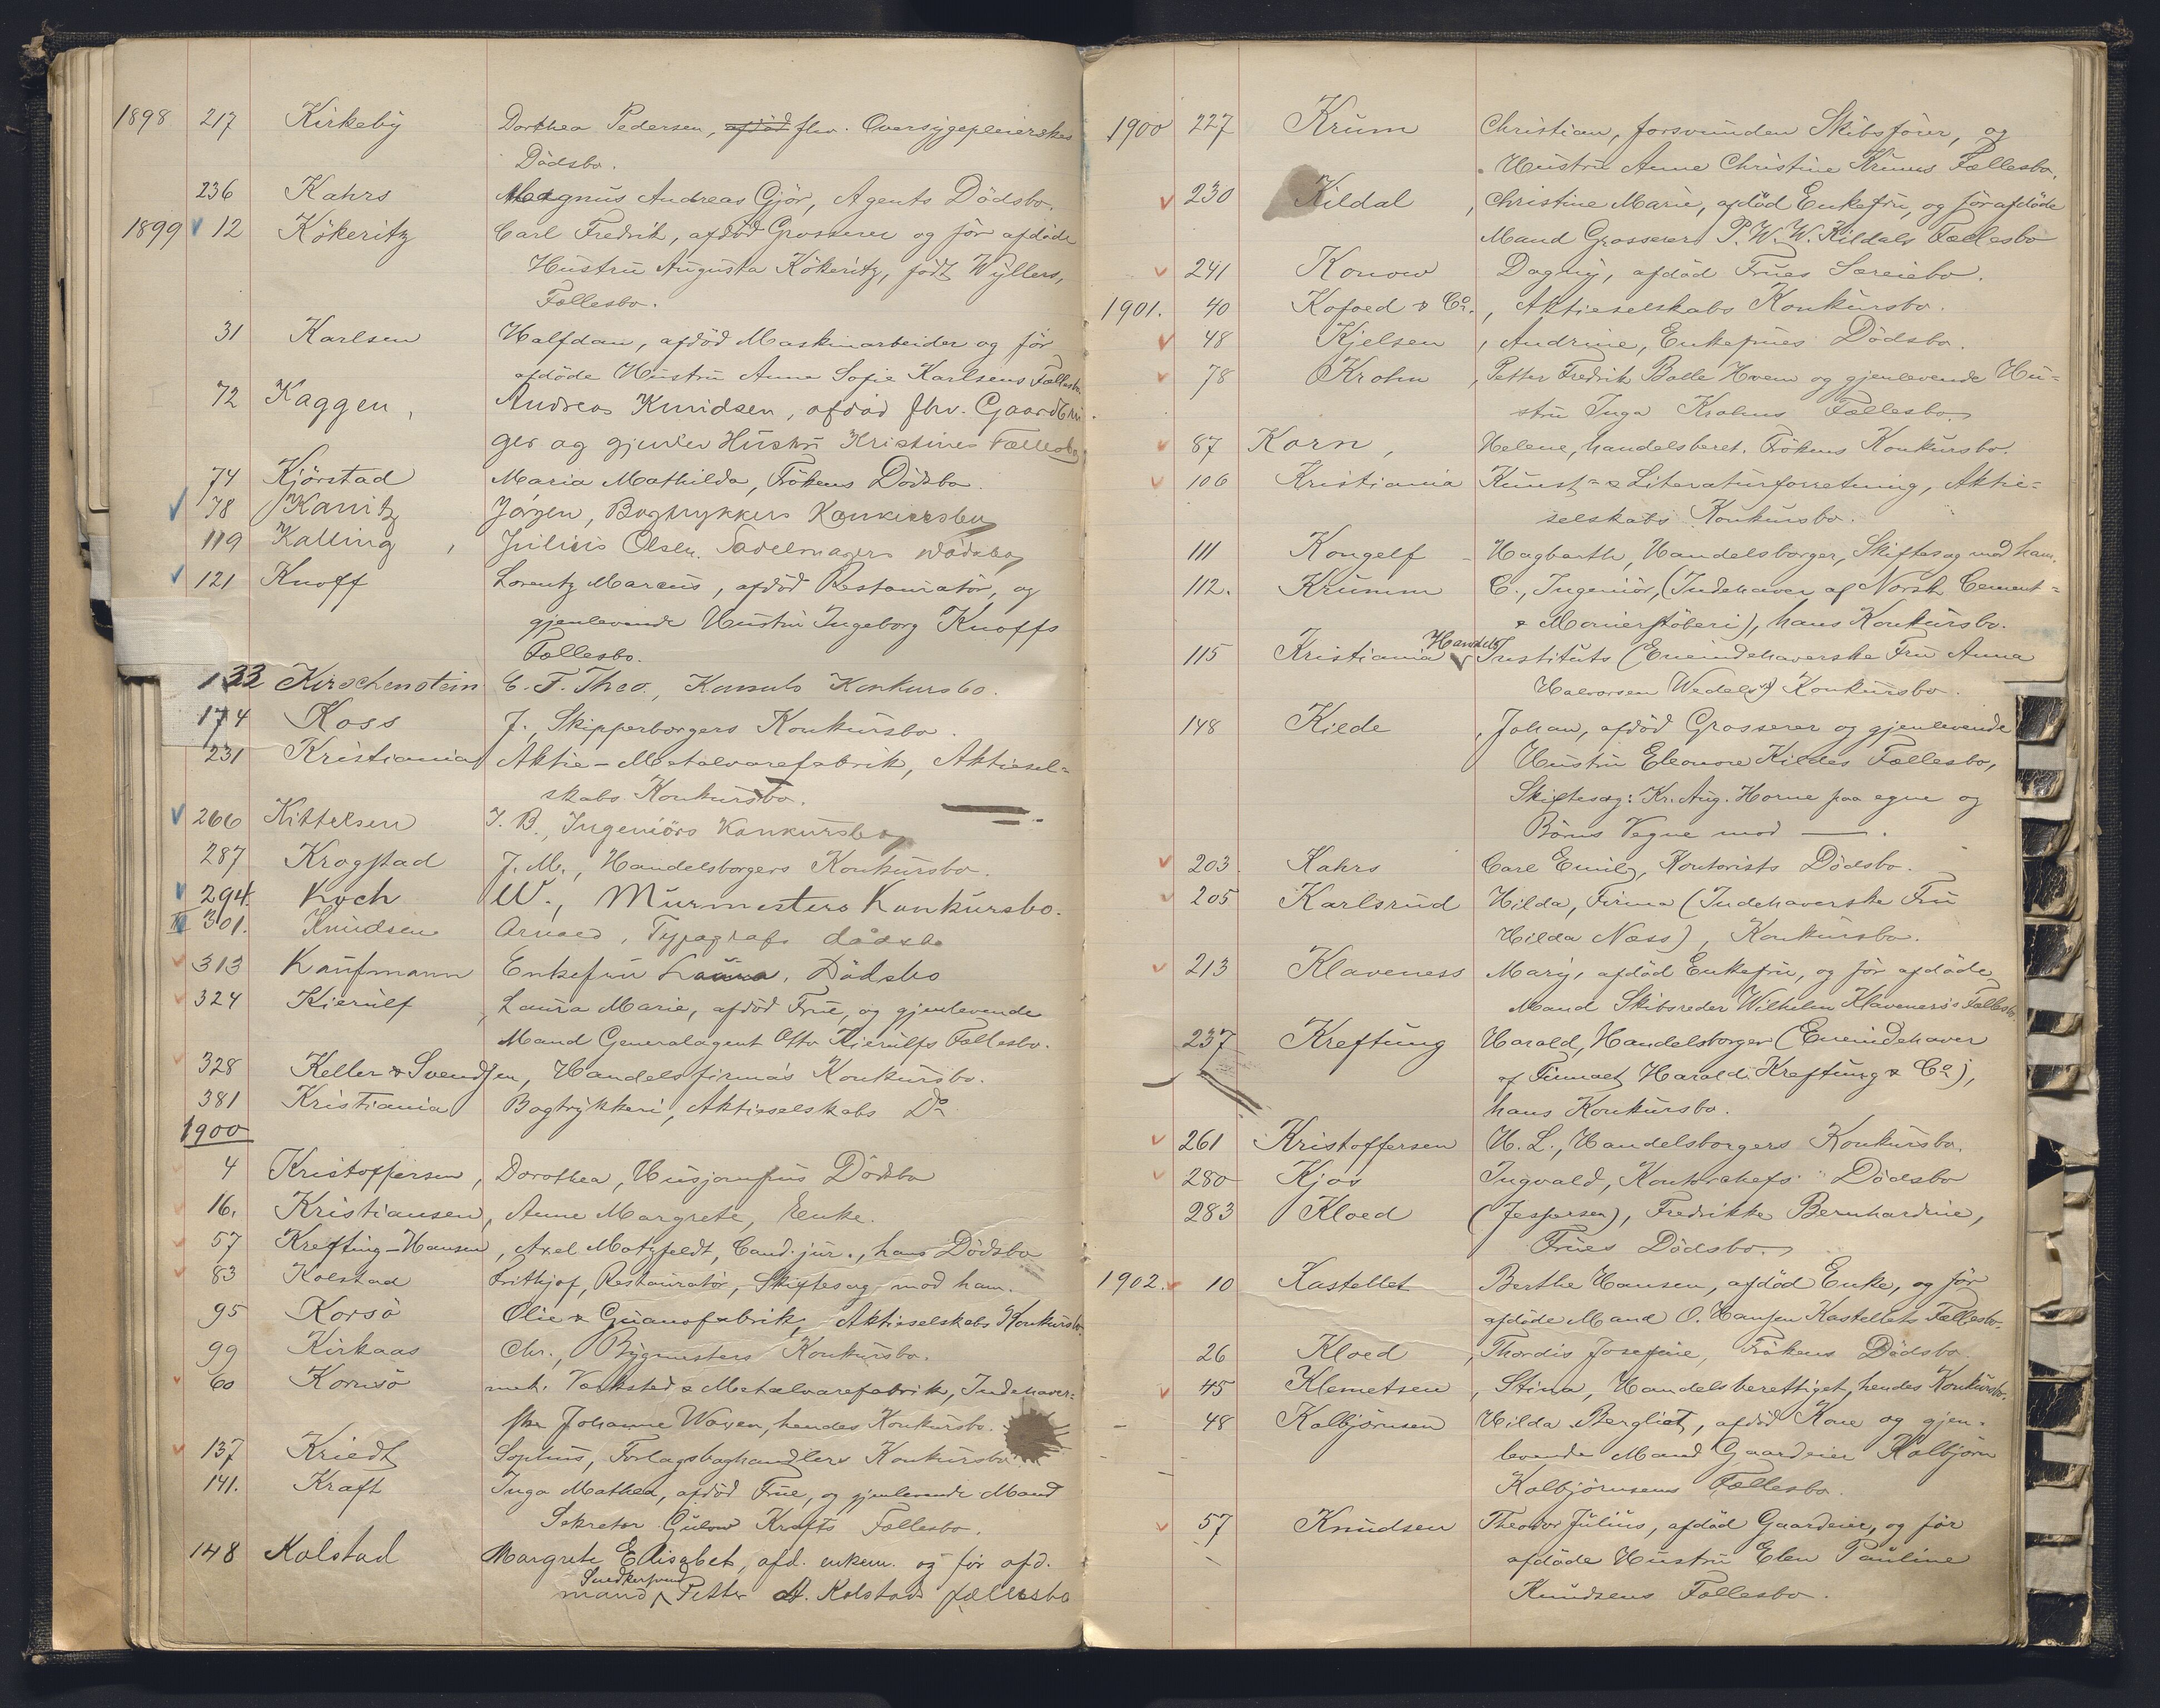 1898 217 Kirkeby Dorthea Pedersen, afdød fhv. Oversygepleierskes
Dödsbo.
236 Kahrs Magnus Andreas Gjör, Agents Dödsbo.
1899 12 Kökeritz Carl Fredrik, afdöd Grosserer og för afdöde
Hustru Augusta Kökeritz, födt Wyllers,
Fællesbo.
31 Karlsen Halfdan, afdöd Maskinarbeider og för
afdöde Hustru Anna Sofie Karlsens Fællesbo
72 Kaggen, Andreas Knudsen, afdöd fhv. Gaardbru-
ger og gjenlev Hustru Kristines Fællesbo
74 Kjörstad Maria Mathilda, Frökens Dödsbo.
78 Kanitz Jörgen, Bogtrykkers Konkursbo
119 Kalling, Julius Olsen, Sadelmagers Dödsbo
121 Knoff Lorentz Marcus, afdöd Restauratör, og
gjenlevende Hustru Ingeborg Knoffs
Fællesbo.
133 Kirschenstein C. F. Theo., Konsuls Konkursbo.
174 Koss J., Skipperborgers Konkursbo.
231 Kristiania Aktie-Metalvarefabrik, Aktiesel-
skabs Konkursbo.
266 Kittelsen J. B., Ingeniörs Konkursbo
287 Krogstad J. M., Handelsborgers Konkursbo.
294. Koch W., Murmesters Konkursbo.
301. Knudsen Arnold, Typografs dödsbo
313 Kaufmann Enkefru Laura, Dödsbo
324 Kierulf, Laura Marie, afdöd Frue, og gjenlevende
Mand Generalagent Otto Kierulfs Fællesbo.
328 Keller & Svendsen, Handelsfirmas Konkursbo.
381 Kristiania Bogtrykkeri, Aktieselskabs Do
1900
4 Kristoffersen, Dorothea, Husjomfrus Dödsbo
16. Kristiansen, Anne Margrete, Enke.
57 Krefting-Hansen, Axel Motzfeldt, Cand. jur., hans Dödsbo
83 Kolstad Frithjof, Restauratör, Skiftesag mod ham.
95 Korsö Olie & Guanofabrik, Aktieselskabs Konkursbo.
99 Kirkaas Chr., Bygmesters Konkursbo.
60 Kornsö mek. Værksted & Metalvarefabrik, Indehaver-
ske Johanne Waxen, hendes Konkursbo.
137 Kriedt Sophus, Forlagsboghandlers Konkursbo
141. Kraft Inga Mathea, afdöd Frue, og gjenlevende Mand
Sekretær Gulow Krafts Fællesbo.
148 Kolstad Margrete Elisabet, afd. enkem. og för afd.
Snedkersvend
mand Petter A. Kolstads fællesbo
1900 227 Krum Christian, forsvunden Skibsförer, og
Hustru Anne Christine Krums Fællesbo.
230 Kildal, Christine Marie, afdöd Enkefru, og för afdöde
Mand Grosserer P. W. W. Kildals Fællesbo
241 Konow Dagny, afdöd Frues Særeiebo.
1901. 40 Kofoed & Co., Aktieselskabs Konkursbo.
48 Kjelsen, Andrine, Enkefrues Dödsbo.
78 Krohn, Petter Fredrik Balle Hvem og gjenlevende Hu-
stru Inga Krohns Fællesbo
87 Korn, Helene, handelsberet. Frökens Konkursbo.
106 Kristiania Kunst- & Literaturforretning, Aktie-
selskabs Konkursbo.
111 Kongelf - Hagbarth, Handelsborger, Skiftesag mod ham.
112. Krumm C., Ingeniör, (Indehaver af Norsk Cement-
& Monierstöberi), hans Konkursbo.
115 Kristiania Handels Instituts (Eneindehaverske Fru Anna
Halvorsen Wedels) Konkursbo.
148 Kilde, Johan, afdöd Grosserer og gjenlevende
Hustru Eleonore Kildes Fællesbo,
Skiftesag: Kr. Aug. Horne paa egne og
Börns Vegne mod —.
203. Kahrs Carl Emil, Kontorists Dödsbo.
205 Karlsrud Hilda, Firma (Indehaverske Fru
Hilda Næss), Konkursbo.
213 Klaveness Mary, afdöd Enkefru, og för afdöde
Mand Skibsreder Wilhelm Klaveness's Fællesbo.
237 Krefting Harald, Handelsborger (Eneindehaver
af Firmaet Harald Krefting & Co),
hans Konkursbo.
261 Kristoffersen H. L., Handelsborgers Konkursbo.
280 Kjos Ingvald, Kontorchefs Dödsbo
283 Kloed (Jespersen), Fredrikke Bernhardine,
Frues Dödsbo.
1902. 10 Kastellet Berthe Hansen, afdöd Enke, og för
afdöde Mand O. Hansen Kastellets Fællesbo.
26 Kloed, Thordis Josefine, Frökens Dödsbo.
45 Klemetsen, Stina, Handelsberettiget, hendes Konkursbo.
48 Kolbjörnsen Hilda Bergliot, afdöd Kone og gjen-
levende Mand Gaardeier Kolbjörn
Kolbjörnsens Fællesbo.
57 Knudsen Theodor Julius, afdöd Gaardeier, og för
afdöde Hustru Elen Pauline
Knudsens Fællesbo.